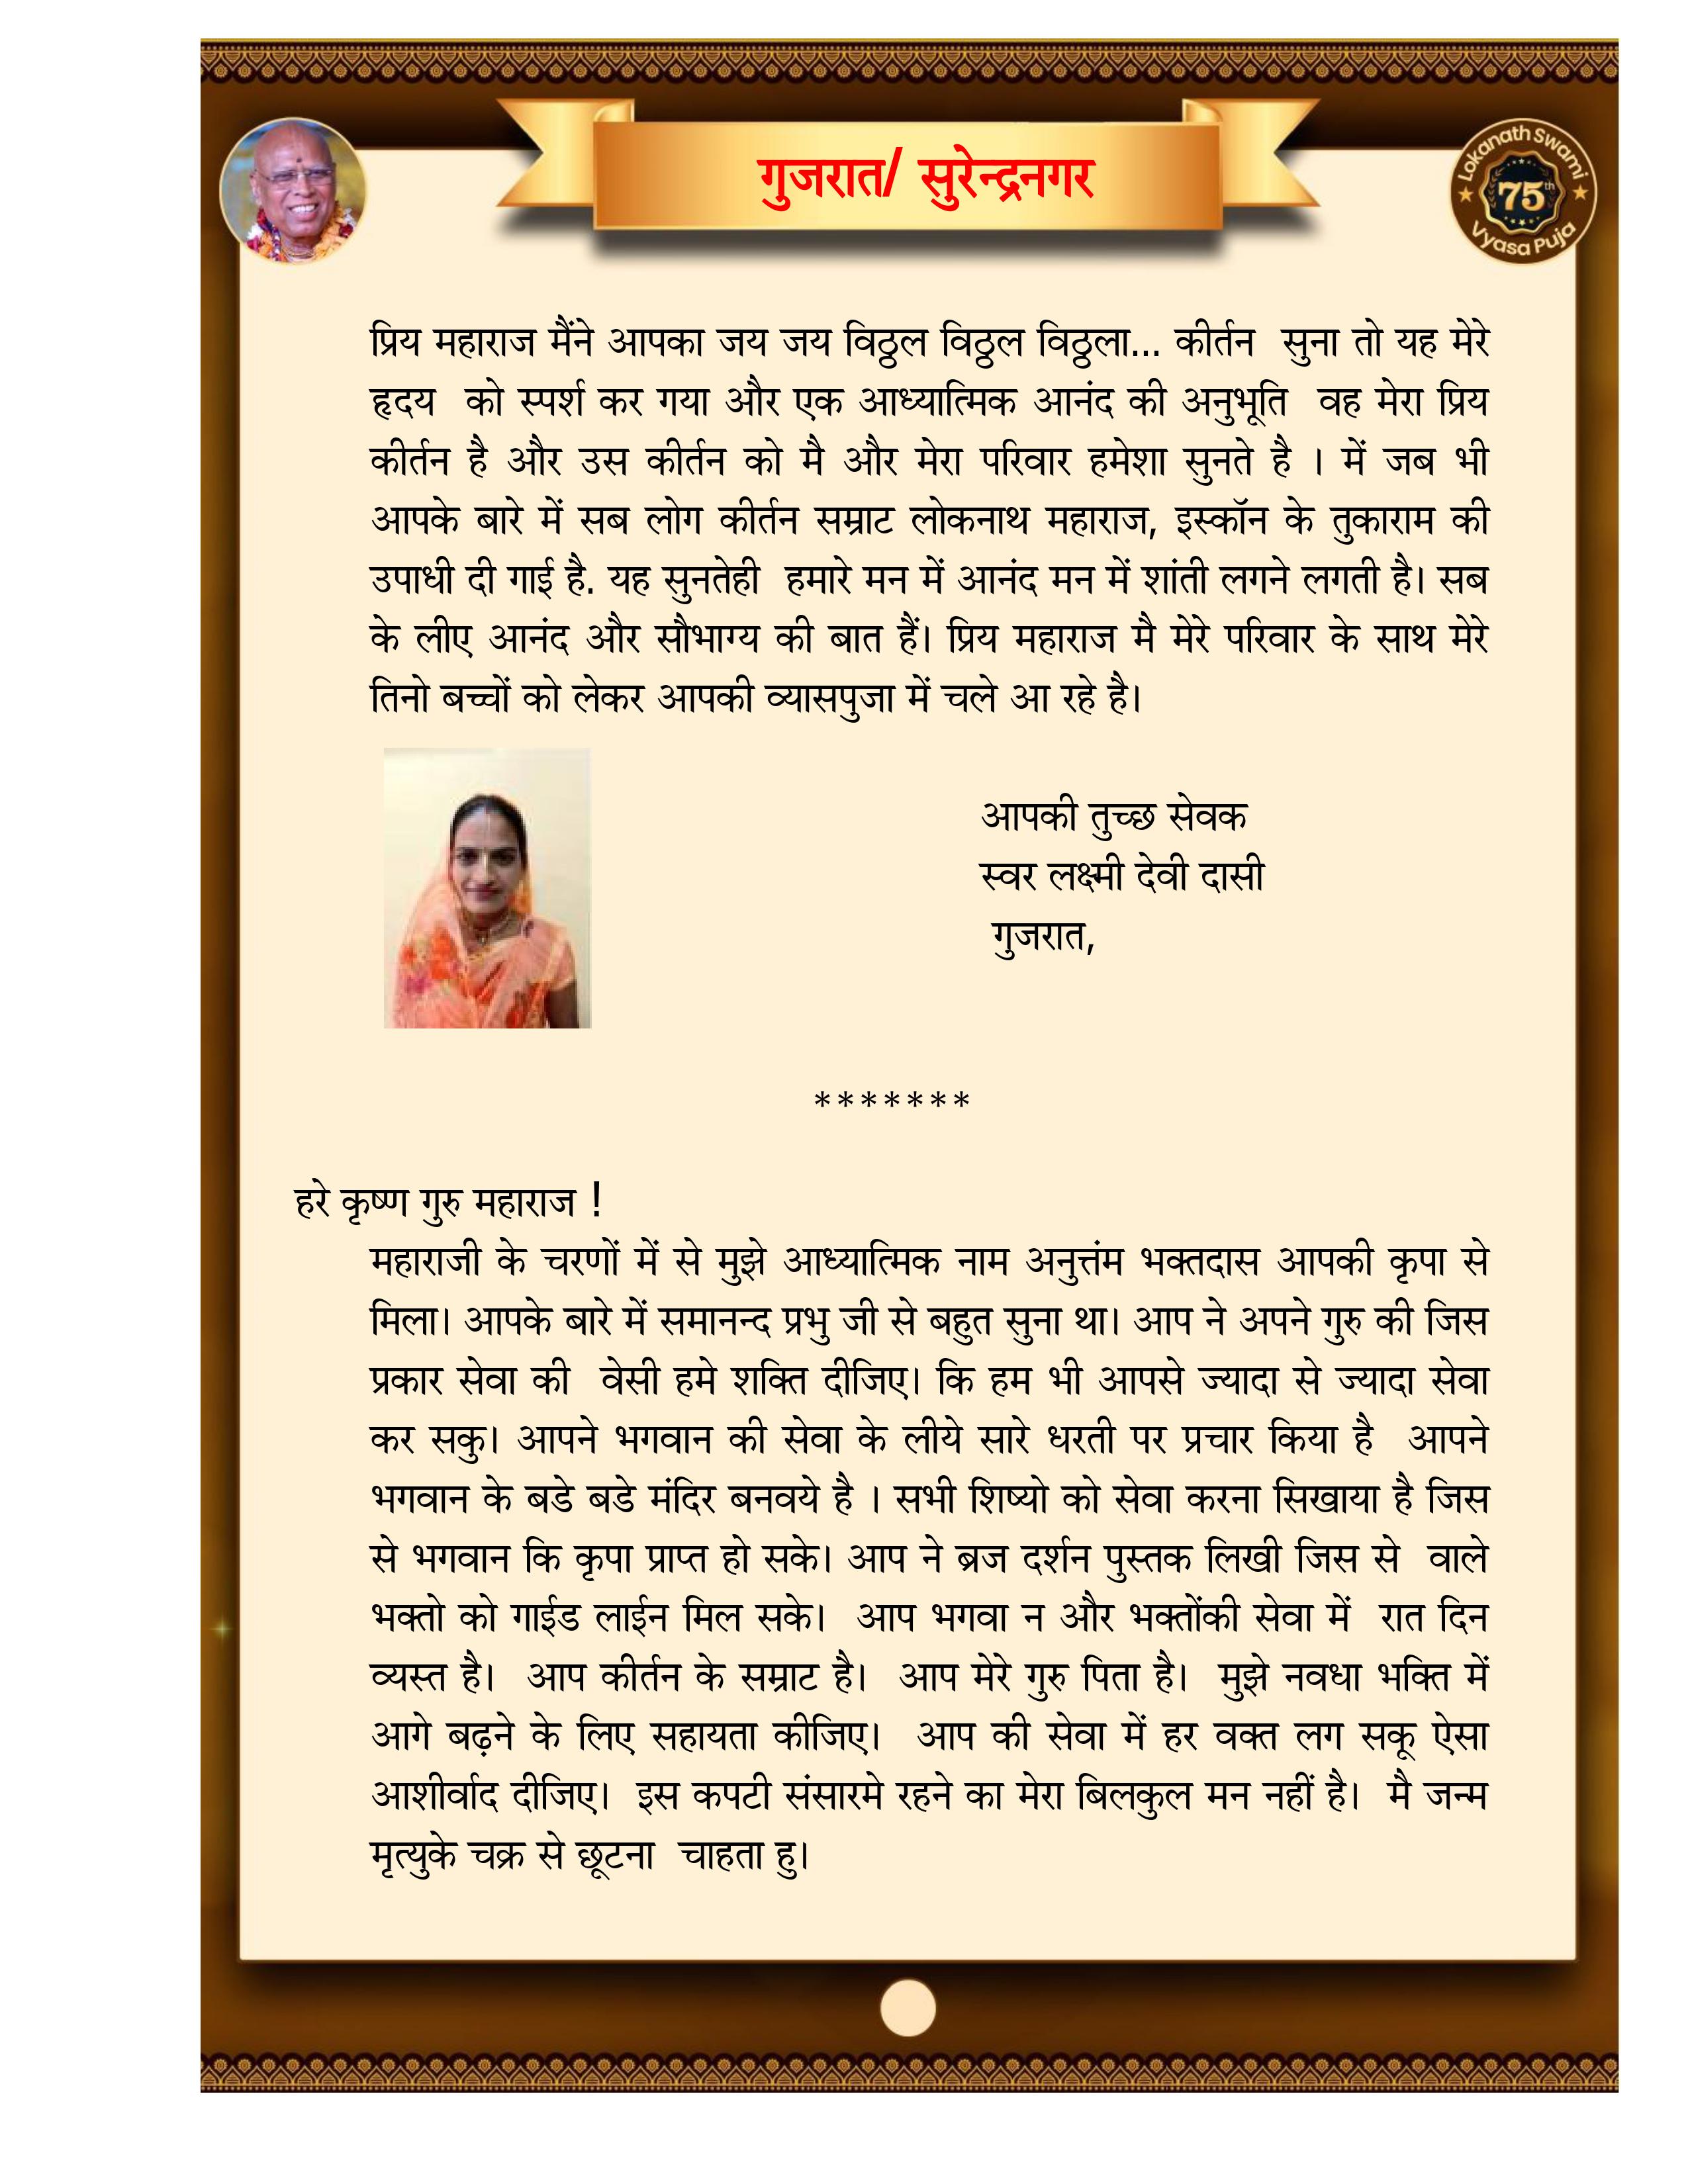 गुजरात/ सुरेन्द्रनगर
Lokanath Swami
75th
Vyasa Puja
प्रिय महाराज मैंने आपका जय जय विठ्ठल विठ्ठल विठ्ठला... कीर्तन सुना तो यह मेरे
हृदय को स्पर्श कर गया और एक आध्यात्मिक आनंद की अनुभूति वह मेरा प्रिय
कीर्तन है और उस कीर्तन को मै और मेरा परिवार हमेशा सुनते है । में जब भी
आपके बारे में सब लोग कीर्तन सम्राट लोकनाथ महाराज, इस्कॉन के तुकाराम की
उपाधी दी गाई है. यह सुनतेही हमारे मन में आनंद मन में शांती लगने लगती है। सब
के लीए आनंद और सौभाग्य की बात हैं। प्रिय महाराज मै मेरे परिवार के साथ मेरे
तिनो बच्चों को लेकर आपकी व्यासपुजा में चले आ रहे है।
आपकी तुच्छ सेवक
स्वर लक्ष्मी देवी दासी
गुजरात,
*******
हरे कृष्ण गुरु महाराज !
महाराजी के चरणों में से मुझे आध्यात्मिक नाम अनुत्तंम भक्तदास आपकी कृपा से
मिला। आपके बारे में समानन्द प्रभु जी से बहुत सुना था। आप ने अपने गुरु की जिस
प्रकार सेवा की वेसी हमे शक्ति दीजिए। कि हम भी आपसे ज्यादा से ज्यादा सेवा
कर सकु। आपने भगवान की सेवा के लीये सारे धरती पर प्रचार किया है आपने
भगवान के बडे बडे मंदिर बनवये है । सभी शिष्यो को सेवा करना सिखाया है जिस
से भगवान कि कृपा प्राप्त हो सके। आप ने ब्रज दर्शन पुस्तक लिखी जिस से वाले
भक्तो को गाईड लाईन मिल सके। आप भगवा न और भक्तोंकी सेवा में रात दिन
व्यस्त है। आप कीर्तन के सम्राट है। आप मेरे गुरु पिता है। मुझे नवधा भक्ति में
आगे बढ़ने के लिए सहायता कीजिए। आप की सेवा में हर वक्त लग सकू ऐसा
आशीर्वाद दीजिए। इस कपटी संसारमे रहने का मेरा बिलकुल मन नहीं है। मै जन्म
मृत्युके चक्र से छूटना चाहता हु।